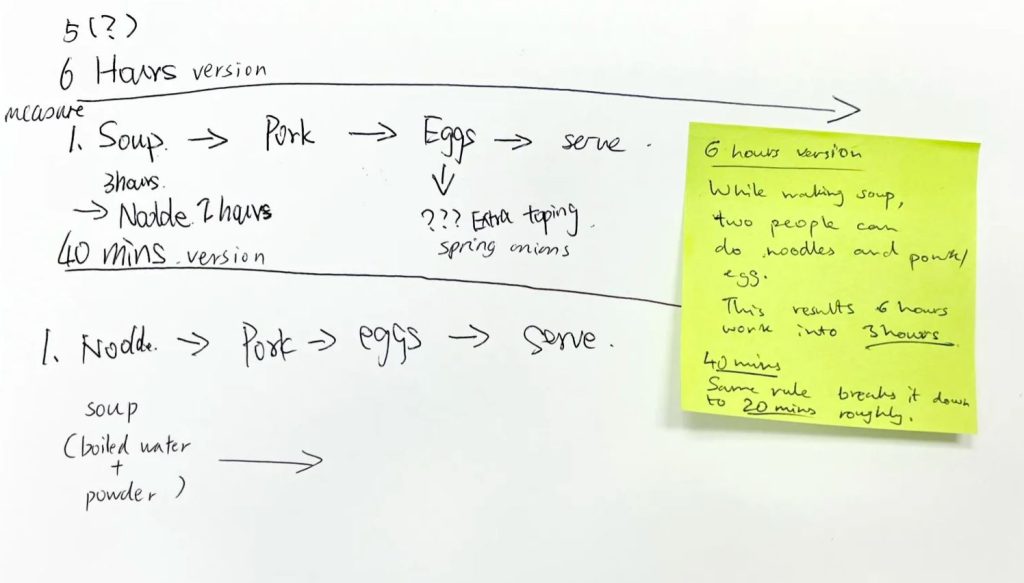 5 (?)
6 Hours version
measure
1. Soup. → Pork → Eggs → serve.
3hours.
→ Nodde. 2 hours
↓
??? Extra toping.
spring onions
40 mins. version
1. Nodde. → Pork → eggs → serve.
soup
(boiled water
+
powder) →
6 hours version
While making soup,
two people can
do noodles and pork/
egg.
This results 6 hours
work into 3hours.
40 mins
Same rule breaks it down
to 20 mins roughly.